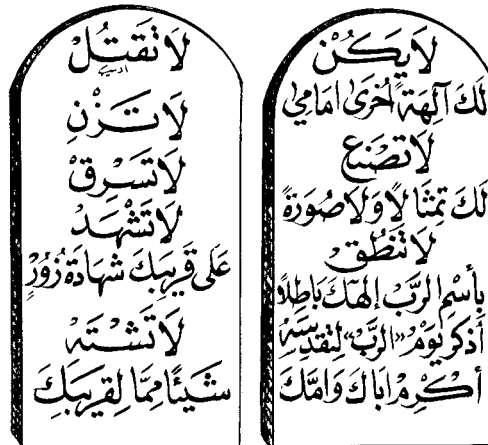 لَا يَكُنْ
لَكَ آلِهَةٌ أُخْرَىٰ أَمَامِي
لَا تَصْنَعْ
لَكَ تِمْثَالًا وَلَا صُورَةً
لَا تَنْطُقْ
بِأَسْمِ الرَّبِّ إِلٰهِكَ بَاطِلًا
أُذْكُرْ يَوْمَ «الرَّبِّ» لِتُقَدِّسَهُ
أَكْرِمْ أَبَاكَ وَأُمَّكَ
لَا تَقْتُلْ
لَا تَــزْنِ
لَا تَسْرِقْ
لَا تَشْهَدْ
عَلَى قَرِيبِكَ شَهَادَةَ زُوْرٍ
لَا تَشْتَهِ
شَيْئًا مِمَّا لِقَرِيبِكَ